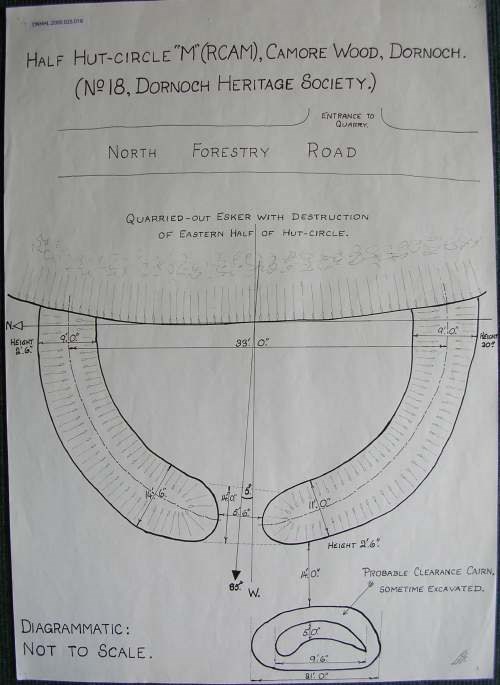 HALF HUT-CIRCLE "M" (RCAM), CAMORE WOOD, DORNOCH.
(No 18, DORNOCH HERITAGE SOCIETY.)
ENTRANCE TO
QUARRY.
NORTH FORESTRY ROAD
QUARRIED-OUT ESKER WITH DESTRUCTION
OF EASTERN HALF OF HUT-CIRCLE.
N
HEIGHT
2'.6".
9'.0".
33'.0".
9'.0".
HEIGHT
14'.6".
5'.6".
11'.0".
HEIGHT 2'.6".
14'.0".
W.
PROBABLE CLEARANCE CAIRN,
SOMETIME EXCAVATED.
5'.0".
9'.6".
DIAGRAMMATIC:
NOT TO SCALE.